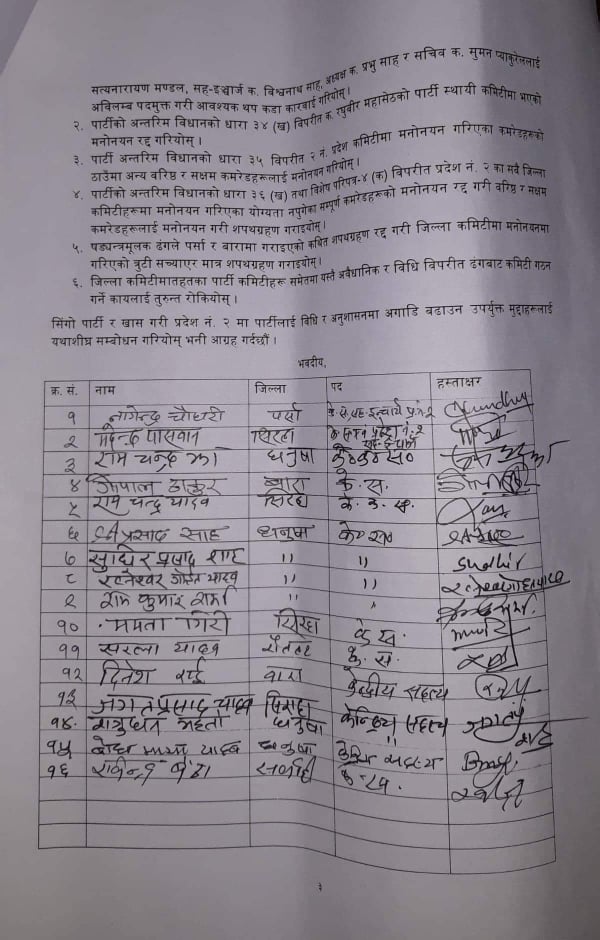 सत्यनारायण मण्डल, सह-इञ्चार्ज क. विश्वनाथ साह, अध्यक्ष क. प्रभु साह र सचिव क. सुमन प्याकुरेललाई
अविलम्ब पदमुक्त गरी आवश्यक थप कडा कारवाई गरियोस् ।
२. पार्टीको अन्तरिम विधानको धारा ३४ (ख) विपरीत क. रघुवीर महासेठको पार्टी स्थायी कमिटीमा भएको
मनोनयन रद्द गरियोस् ।
३. पार्टी अन्तरिम विधानको धारा ३५ विपरीत २ नं. प्रदेश कमिटीमा मनोनयन गरिएका कमरेडहरूको
ठाउँमा अन्य वरिष्ठ र सक्षम कमरेडहरूलाई मनोनयन गरियोस् ।
४. पार्टीको अन्तरिम विधानको धारा ३६ (ख) तथा विशेष परिपत्र-४ (क) विपरीत प्रदेश नं. २ का सबै जिल्ला
कमिटीहरूमा मनोनयन गरिएका योग्यता नपुगेका सम्पूर्ण कमरेडहरूको मनोनयन रद्द गरी वरिष्ठ र सक्षम
कमरेडहरूलाई मनोनयन गरी शपथग्रहण गराइयोस् ।
५. षड्यन्त्रमूलक ढंगले पर्सा र बारामा गराइएको कथित शपथग्रहण रद्द गरी जिल्ला कमिटीमा मनोनयनमा
गरिएको त्रुटी सच्याएर मात्र शपथग्रहण गराइयोस् ।
६. जिल्ला कमिटीमातहतका पार्टी कमिटीहरू समेतमा यस्तै अवैधानिक र विधि विपरीत ढंगबाट कमिटी गठन
गर्ने कार्यलाई तुरुन्त रोकियोस् ।
सिंगो पार्टी र खास गरी प्रदेश नं. २ मा पार्टीलाई विधि र अनुशासनमा अगाडि बढाउन उपर्युक्त मुद्दाहरूलाई
यथाशीघ्र सम्बोधन गरियोस् भनी आग्रह गर्दछौं ।
भवदीय,
क्र. सं. नाम जिल्ला पद हस्ताक्षर
१ नागेन्द्र चौधरी पर्सा के.स. सह-इन्चार्ज प्र.नं. २
२ महेन्द्र पासवान सिरहा
३ राम चन्द्र झा धनुषा
४ गोपाल ठाकुर बारा के. स.
५ राम चन्द्र यादव सिरहा के. स.
६ प्रसाद साह धनुषा के० स०
७ सुधिर प्रसाद शाह ,, ,, Sudhir
८ रत्नेश्वर गोईत यादव ,, ,,
९ राम कुमार शर्मा " "
१० ममता गिरी सिरहा के. स.
११ सरला यादव रौतहट के. स.
१२ दिनेश बारा केन्द्रीय सदस्य
१३ जगत प्रसाद यादव सिराहा केन्द्रिय सदस्य जगत
१४. शत्रुधन महतो धनुषा ,,
१५ यादव धनुषा केन्द्रिय सदस्य
१६ सर्लाही
३